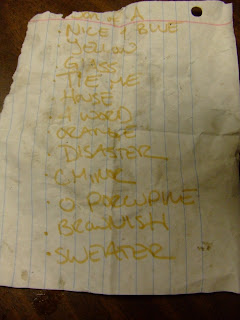 A
· NICE & BLUE
· YELLOW
· GLASS
TIE ME
HOUSE
· A WORD
ORANGE
· DISASTER
CHINA
· O PORCUPINE
· BROWNISH
· SWEATER